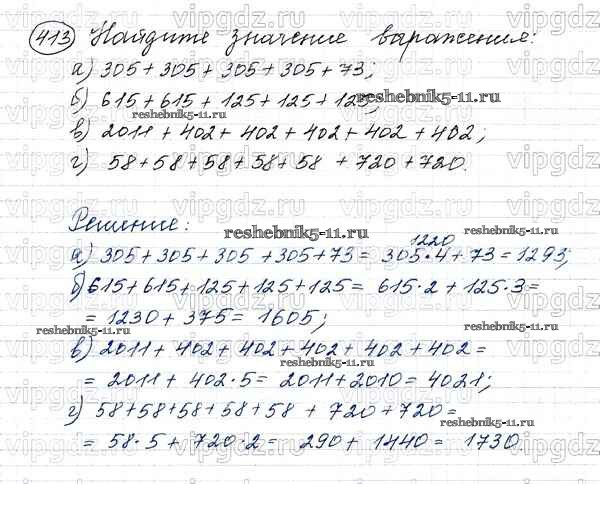 413 Найдите значение выражения:
а) 305 + 305 + 305 + 305 + 73;
б) 615 + 615 + 125 + 125 + 125;
reshebnik5-11.ru
в) 2011 + 402 + 402 + 402 + 402 + 402;
г) 58 + 58 + 58 + 58 + 58 + 720 + 720.
Решение:
reshebnik5-11.ru
reshebnik5-11.ru
1220
а) 305 + 305 + 305 + 305 + 73 = 305·4 + 73 = 1293;
б) 615 + 615 + 125 + 125 + 125 = 615·2 + 125·3 =
= 1230 + 375 = 1605;
reshebnik5-11.ru
reshebnik5-11.ru
в) 2011 + 402 + 402 + 402 + 402 + 402 =
= 2011 + 402·5 = 2011 + 2010 = 4021;
reshebnik5-11.ru
г) 58 + 58 + 58 + 58 + 58 + 720 + 720 =
reshebnik5-11.ru
= 58·5 + 720·2 = 290 + 1440 = 1730.
vipgdz.ru